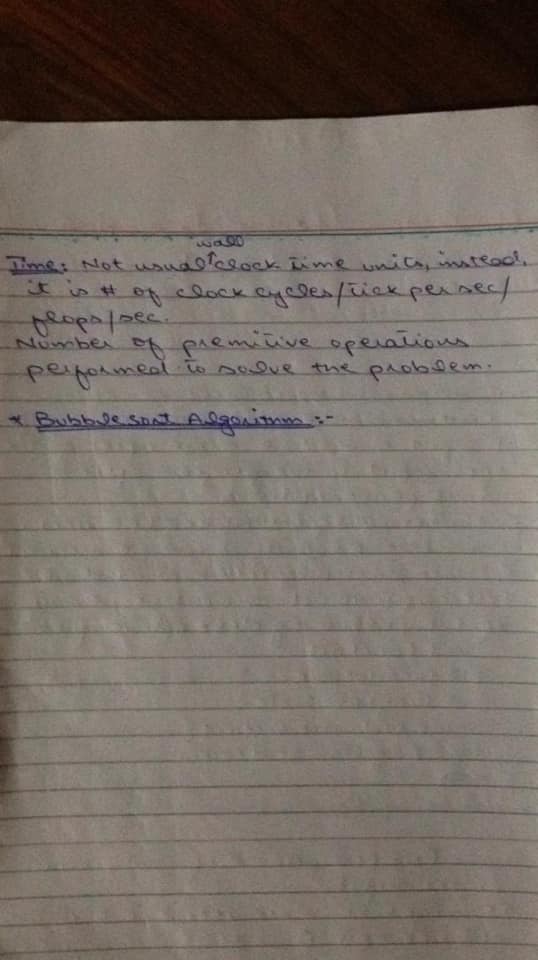 wall
Time: Not usual ↑ clock time units, instead,
it is # of clock cycles/tick per sec/
flops/sec.
Number of premitive operations
performed to solve the problem.
* Bubble sort Algorithm :-